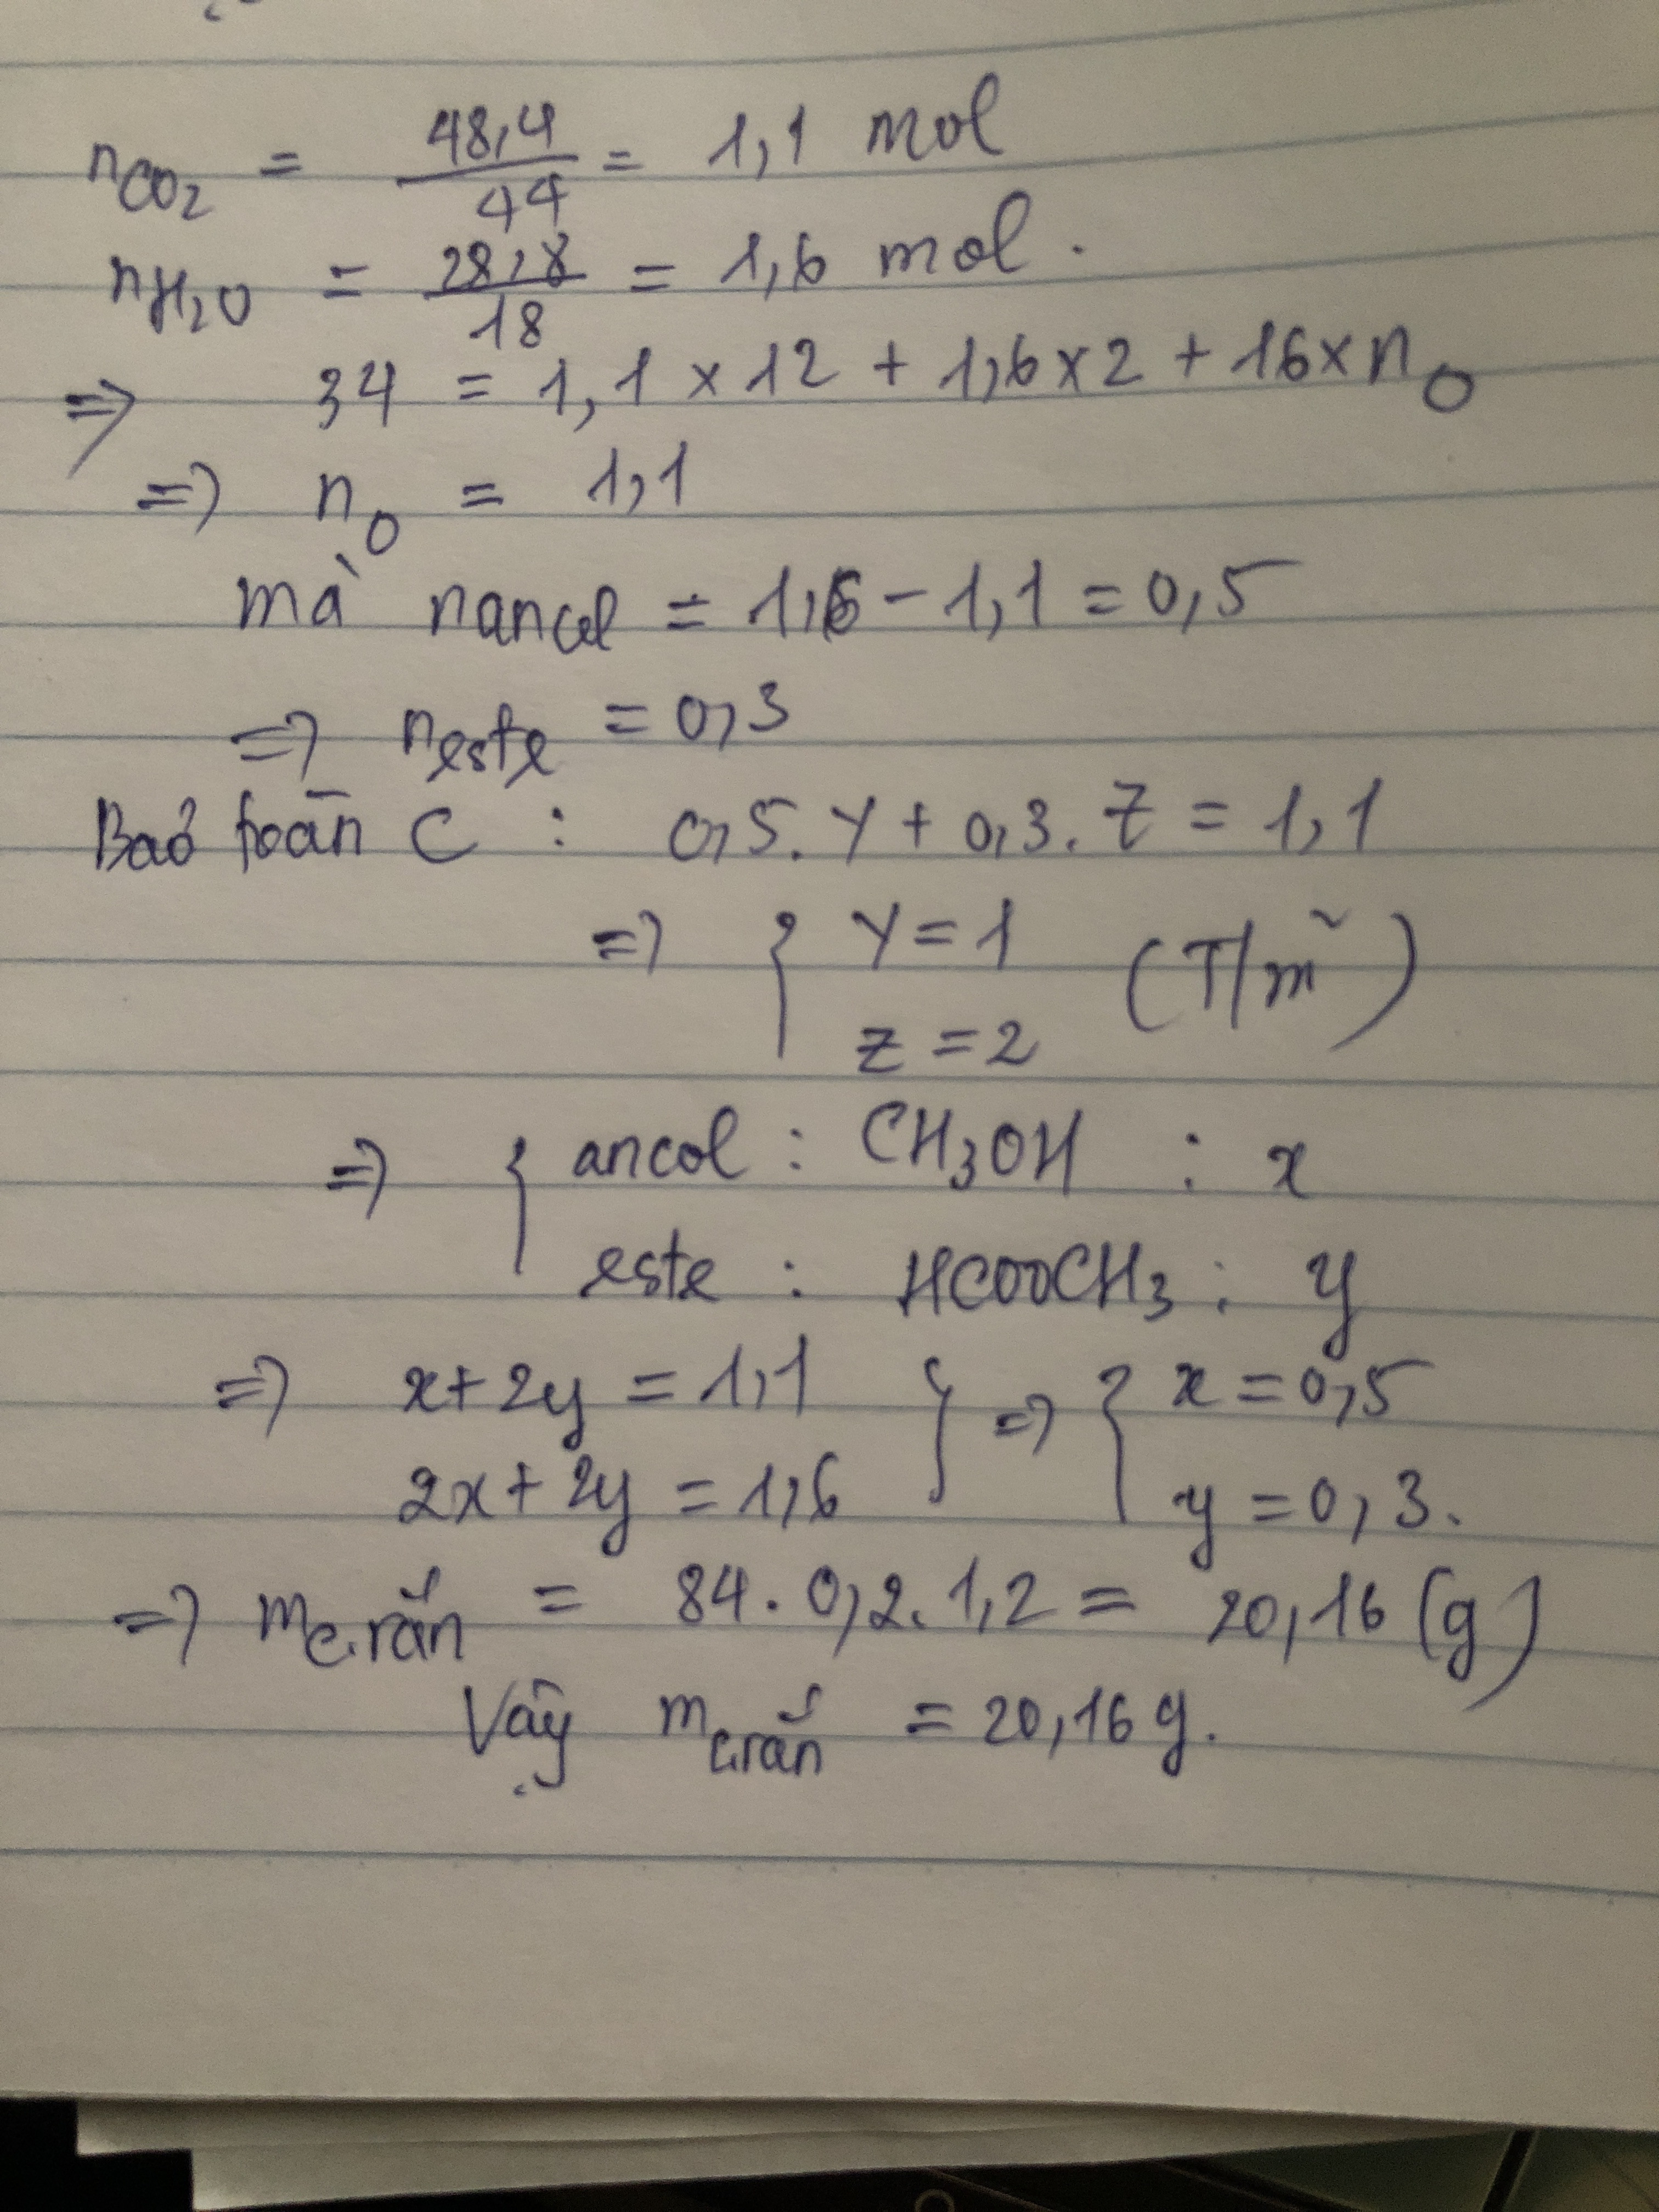 nCO2 = 48,4/44 = 1,1 mol
nH2O = 28,8/18 = 1,6 mol.
=> 34 = 1,1 x 12 + 1,6 x 2 + 16 x nO
=> nO = 1,1
mà nancol = 1,6 - 1,1 = 0,5
=> neste = 0,3
Bảo toàn C : 0,5. Y + 0,3. Z = 1,1
=> { Y = 1
Z = 2 (T/m)
=> { ancol : CH3OH : x
este : HCOOCH3 : y
=> x + 2y = 1,1 } => { x = 0,5
2x + 2y = 1,6 y = 0,3.
=> mc.rắn = 84. 0,2. 1,2 = 20,16 (g)
Vậy mc.rắn = 20,16 g.